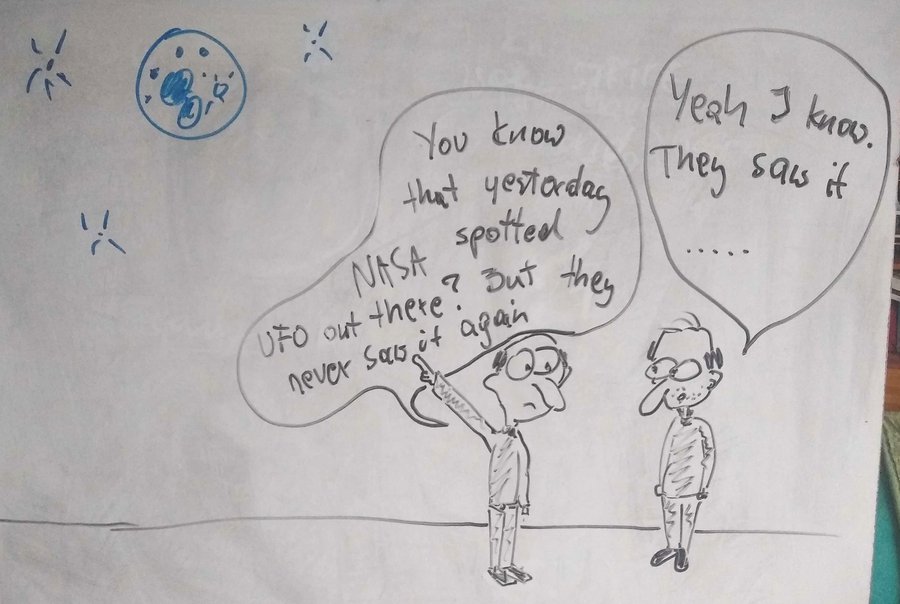 You know
that yesterday
NASA spotted
UFO out there? But they
never saw it again
Yeah I know.
They saw it
.....